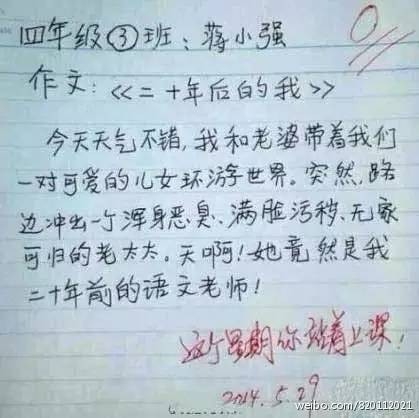 四年级③班：蒋小强
0
作文：《二十年后的我》
今天天气不错,我和老婆带着我们
一对可爱的儿女环游世界。突然,路
边冲出一个浑身恶臭、满脸污秽、无家
可归的老太太。天啊!她竟然是我
二十年前的语文老师!
这个星期你站着上课!
2014.5.29
weibo.com/820112021